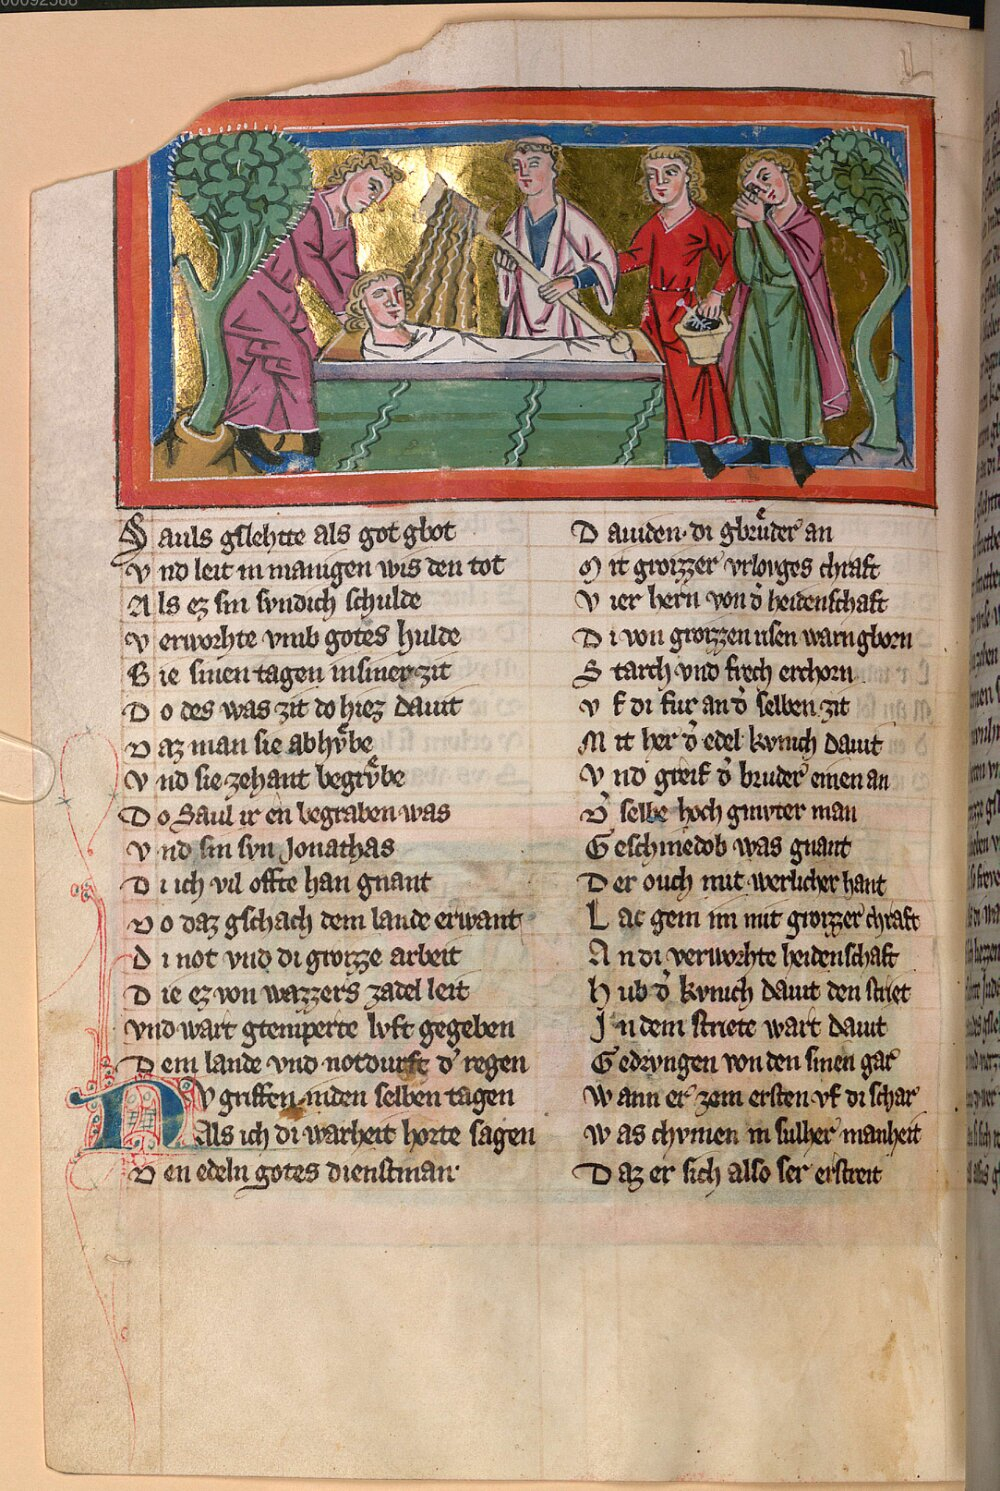 00092388
Sauls gslehtte als got gbot
Vnd leit in manigen wis den tot
Als ez sin syndich schulde
Verworhte vmb gotes hulde
Bie sinen tagen in siner zit
Do des was zit do hiez dauit
Daz man sie abhvͤbe
Vnd sie zehant begrvͤbe
Do Saul ir en begraben was
Vnd sin syn Jonathas
Di ich vil offte han gnant
Do daz gschach dem lande erwant
Di not vnd di grozze arbeit
Die ez von wazzers zadel leit
vnd wart gtemperte lvft gegeben
Dem lande vnd notdurft d' regen
Nv griffen in den selben tagen
Als ich di warheit horte sagen
Den edeln gotes dienstman
Dauiden di gbrvͤder an
Mit grozzer vrlovges chraft
Vier hern von d' heidenschaft
Di von grozzen risen warn gborn
Starch vnd frech erchorn
Vf di fur an d' selben zit
Mit her d' edel kvnich dauit
Vnd greif d' bruder einen an
D' selbe hoch gmvter man
Geschmedob was gnant
Der ouch mit werlicher hant
Lac gem im mit grozzer chraft
An di verworhte heidenschaft
Hub d' kvnich dauit den striet
In dem striete wart dauit
Gedrvngen von den sinen gar
Wann er zem ersten vf di schar
Was chvmen in sulher manheit
Daz er sich also ser erstreit